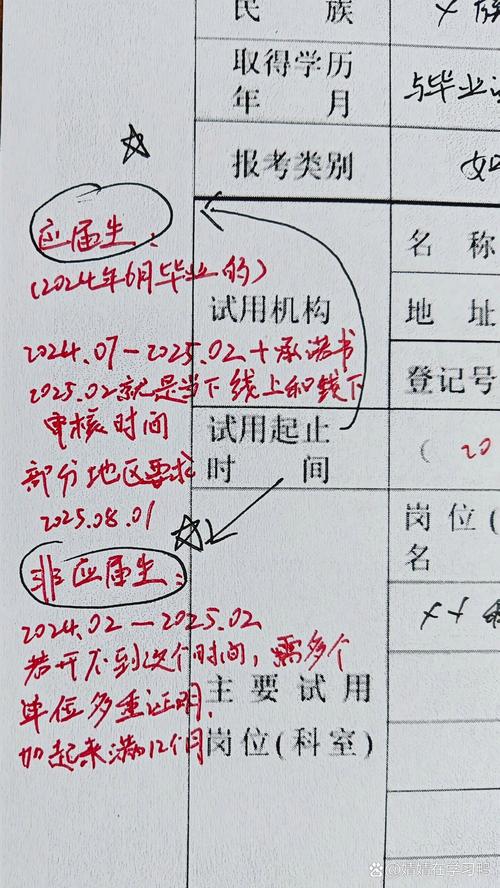 民 族
×族
取得学历
年 月
与毕业
报考类别
如
应届生:
(2024年6月毕业的)
名 称
试用机构
地 址
2024.07-2025.02+承诺书
2025.02就是当下线上和线下
审核时间
登记号
试用起止
时 间
( 20
部分地区要求
2025.08.01
岗位(
名
非应届生:
××
2024.02-2025.02
若开不到这个时间,需多个
单位多重证明,
加起来满12个月
主要试用
岗位(科室)
婧婧在学习鸭